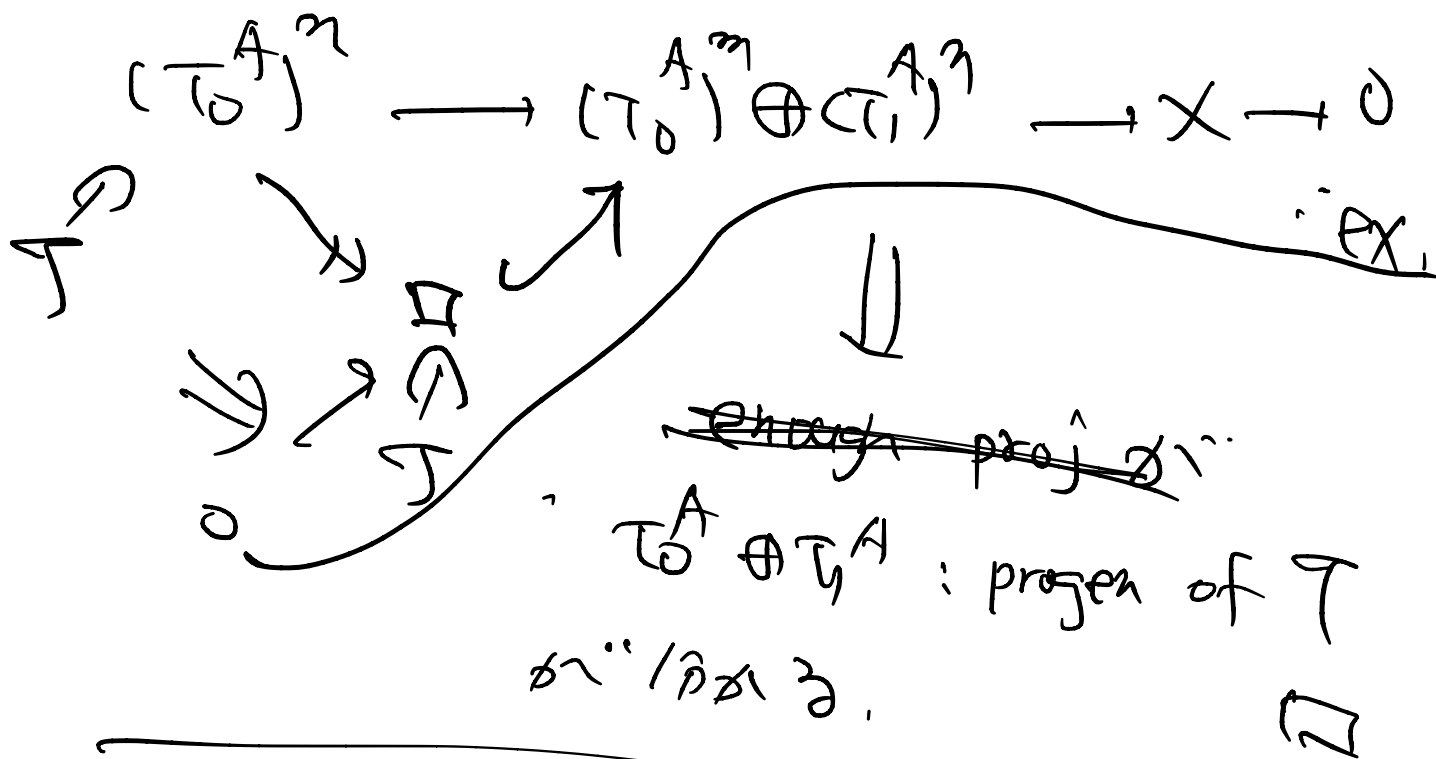 (T_0^A)^n → (T_0^A)^m ⊕ (T_1^A)^n → X → 0
T
: ex.
□
T
0
enough proj が
T_0^A ⊕ T_1^A : progen of T
が分かる.
□